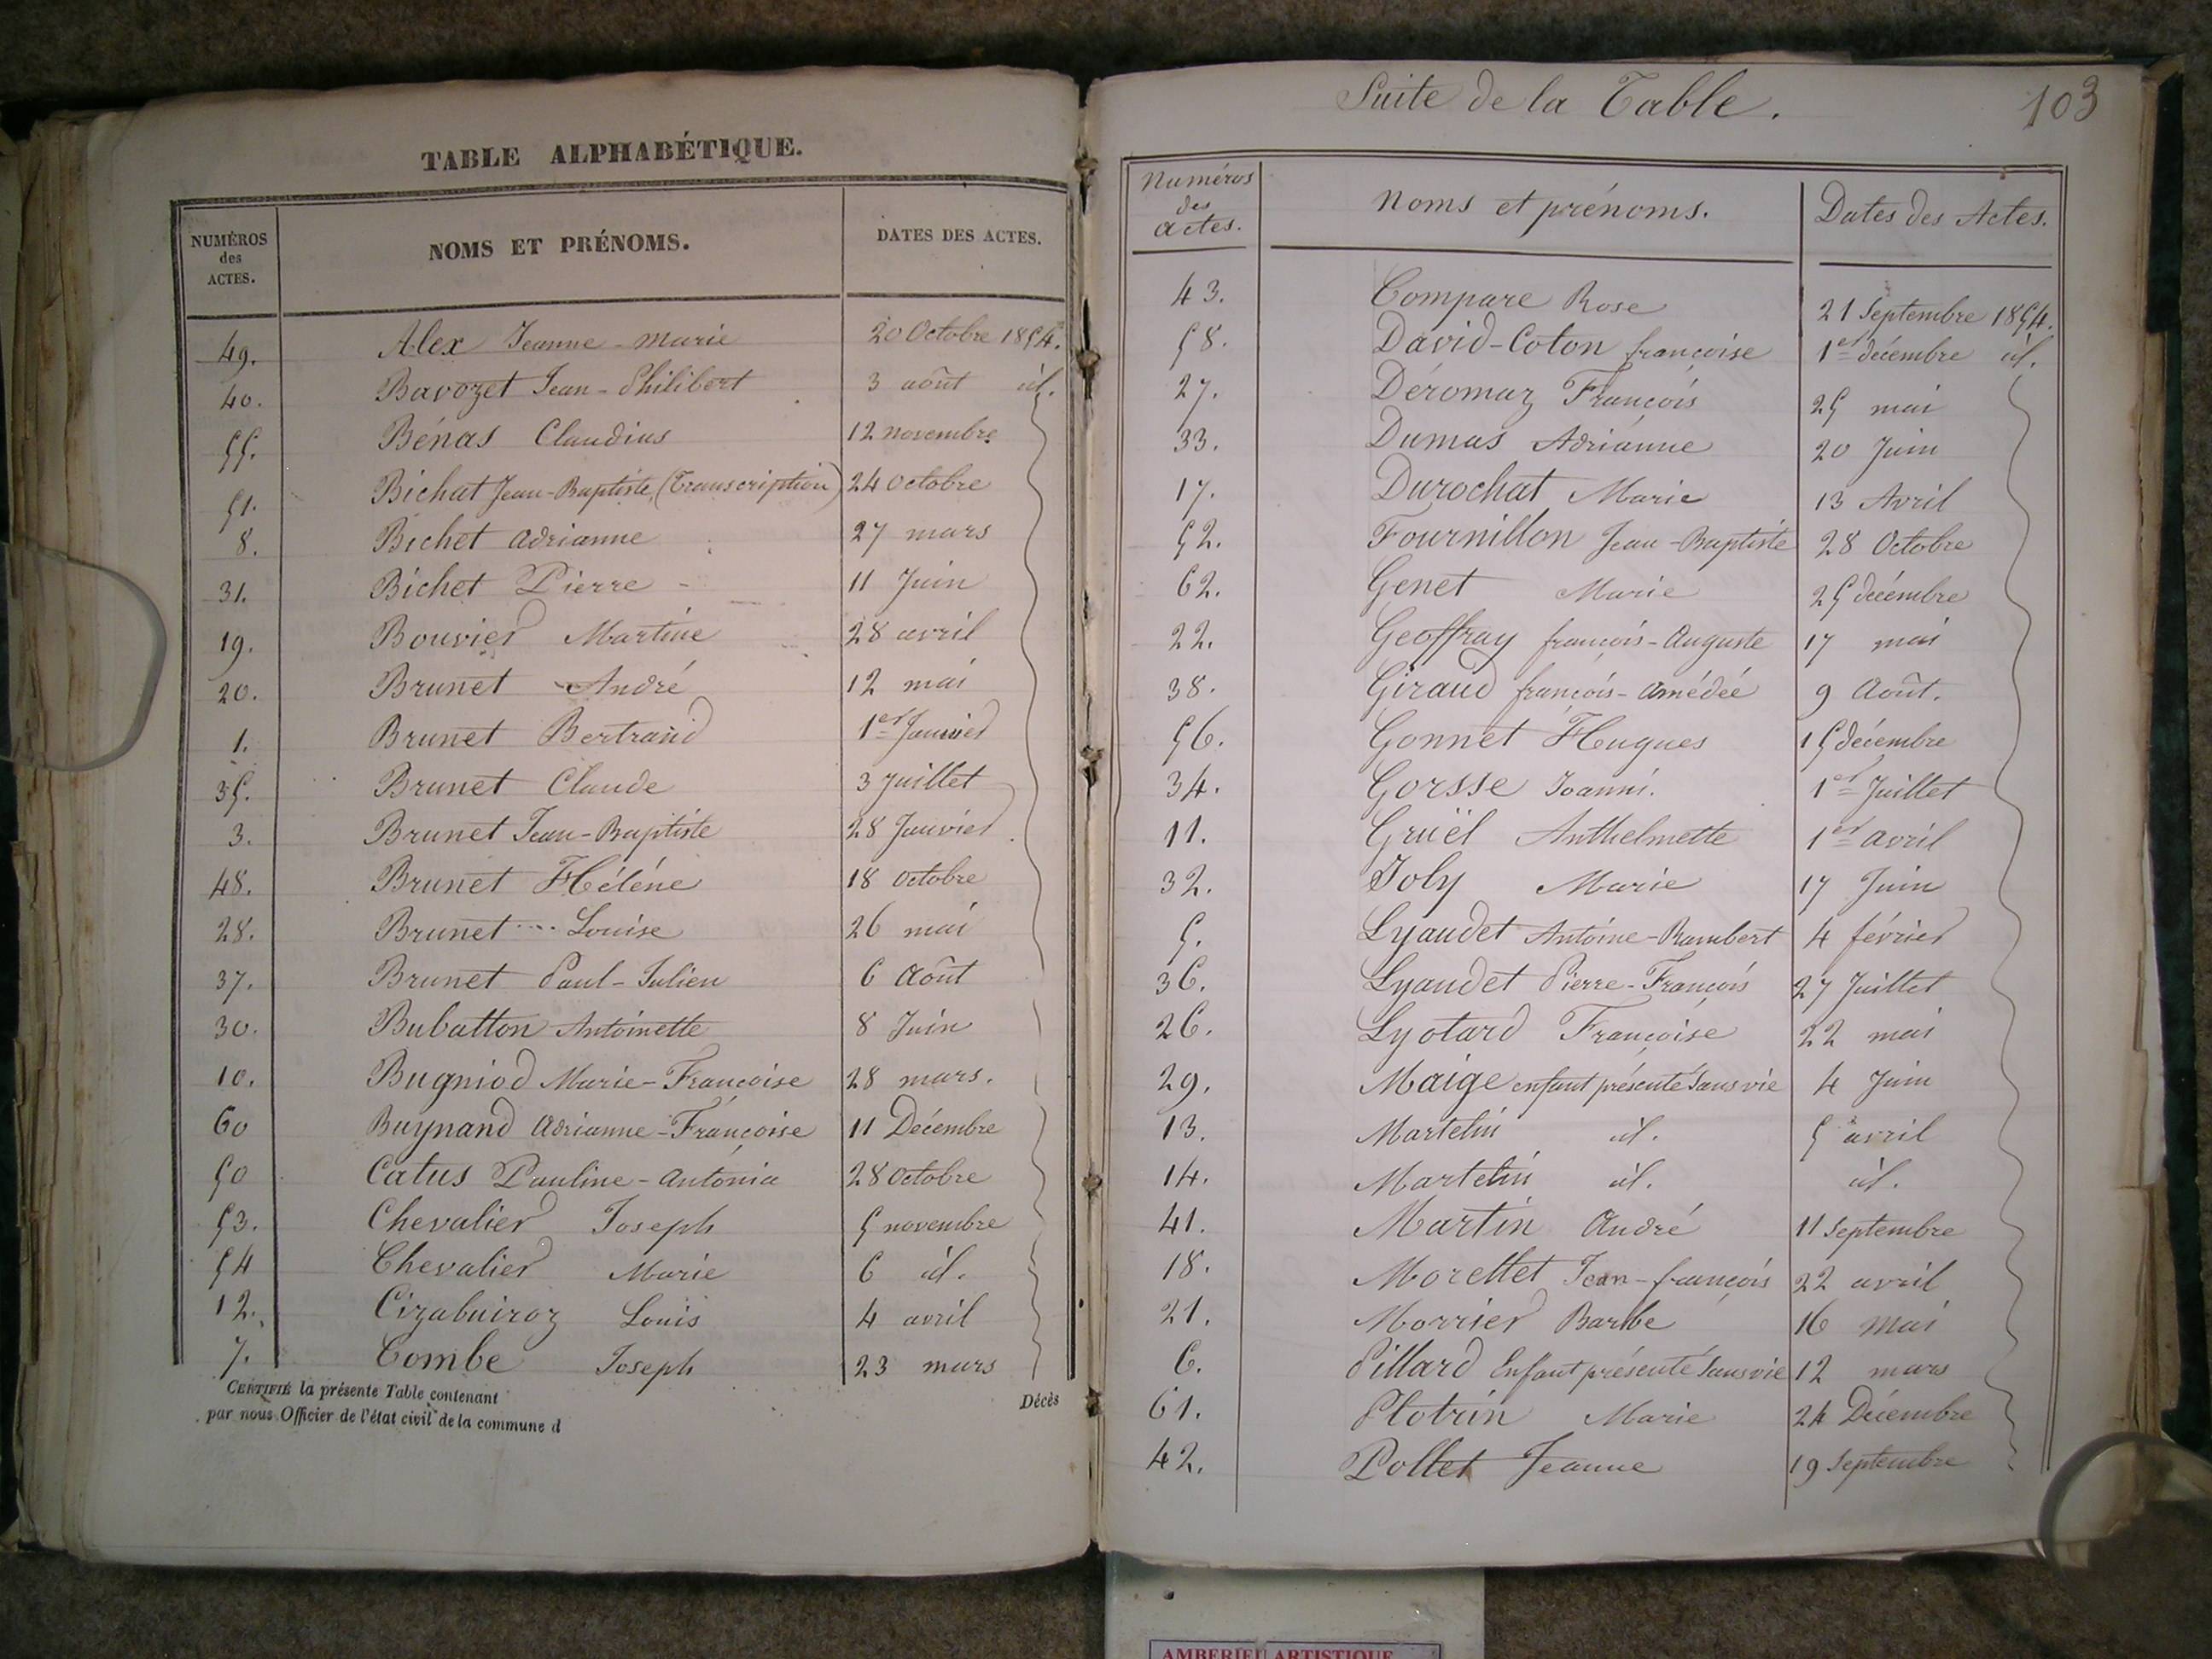 TABLE ALPHABÉTIQUE.
NUMÉROS
des
ACTES.
NOMS ET PRÉNOMS.
DATES DES ACTES.
49. Alex Jeanne-Marie 20 Octobre 1854.
40. Bavozet Jean-Philibert 3 août id.
55. Bénas Claudius 12 novembre
51. Bichat Jean-Baptiste, (Transcription) 24 octobre
8. Bichet Adrianne 27 mars
31. Bichet Pierre 11 Juin
19. Bouvier Martine 28 avril
20. Brunet André 12 mai
1. Brunet Bertrand 1er Janvier
35. Brunet Claude 3 Juillet
3. Brunet Jean-Baptiste 28 Janvier
48. Brunet Héléne 18 octobre
28. Brunet Louise 26 mai
37. Brunet Paul-Julien 6 Août
30. Bubatton Antoinette 8 Juin
10. Bugniod Marie-Françoise 28 mars.
60 Buynand Adrianne-Françoise 11 Décembre
50 Catus Pauline-Antonia 28 Octobre
53. Chevalier Joseph 5 novembre
54 Chevalier Marie 6 id.
12. Cizabuiroz Louis 4 avril
7. Combe Joseph 23 mars
CERTIFIÉ la présente Table contenant Décès
par nous Officier de l'état civil de la commune d
Suite de la Table. 103
Numéros
des
actes.
Noms et prénoms.
Dates des Actes.
43. Compare Rose 21 Septembre 1854.
58. David-Coton françoise 1er décembre id.
27. Déromaz François 25 mai
33. Dumas Adrianne 20 Juin
17. Durochat Marie 13 Avril
52. Fournillon Jean-Baptiste 28 Octobre
62. Genet Marie 25 décembre
22. Geoffray françois-Auguste 17 mai
38. Giraud françois-Amédée 9 Août.
56. Gonnet Hugues 15 décembre
34. Gorsse Joanni. 1er Juillet
11. Gruël Anthelmette 1er avril
32. Joly Marie 17 Juin
5. Lyaudet Antoine-Rambert 4 février
36. Lyaudet Pierre-François 27 Juillet
26. Lyotard Françoise 22 mai
29. Maige enfant présenté sans vie 4 Juin
13. Martelin id. 5 avril
14. Martelin id. id.
41. Martin André 11 Septembre
18. Morellet Jean-françois 22 avril
21. Morrier Barbe 16 Mai
6. Pillard Enfant présenté sans vie 12 mars
61. Plotrin Marie 24 Décembre
42. Pollet Jeanne 19 Septembre
AMBERIEU ARTISTIQUE